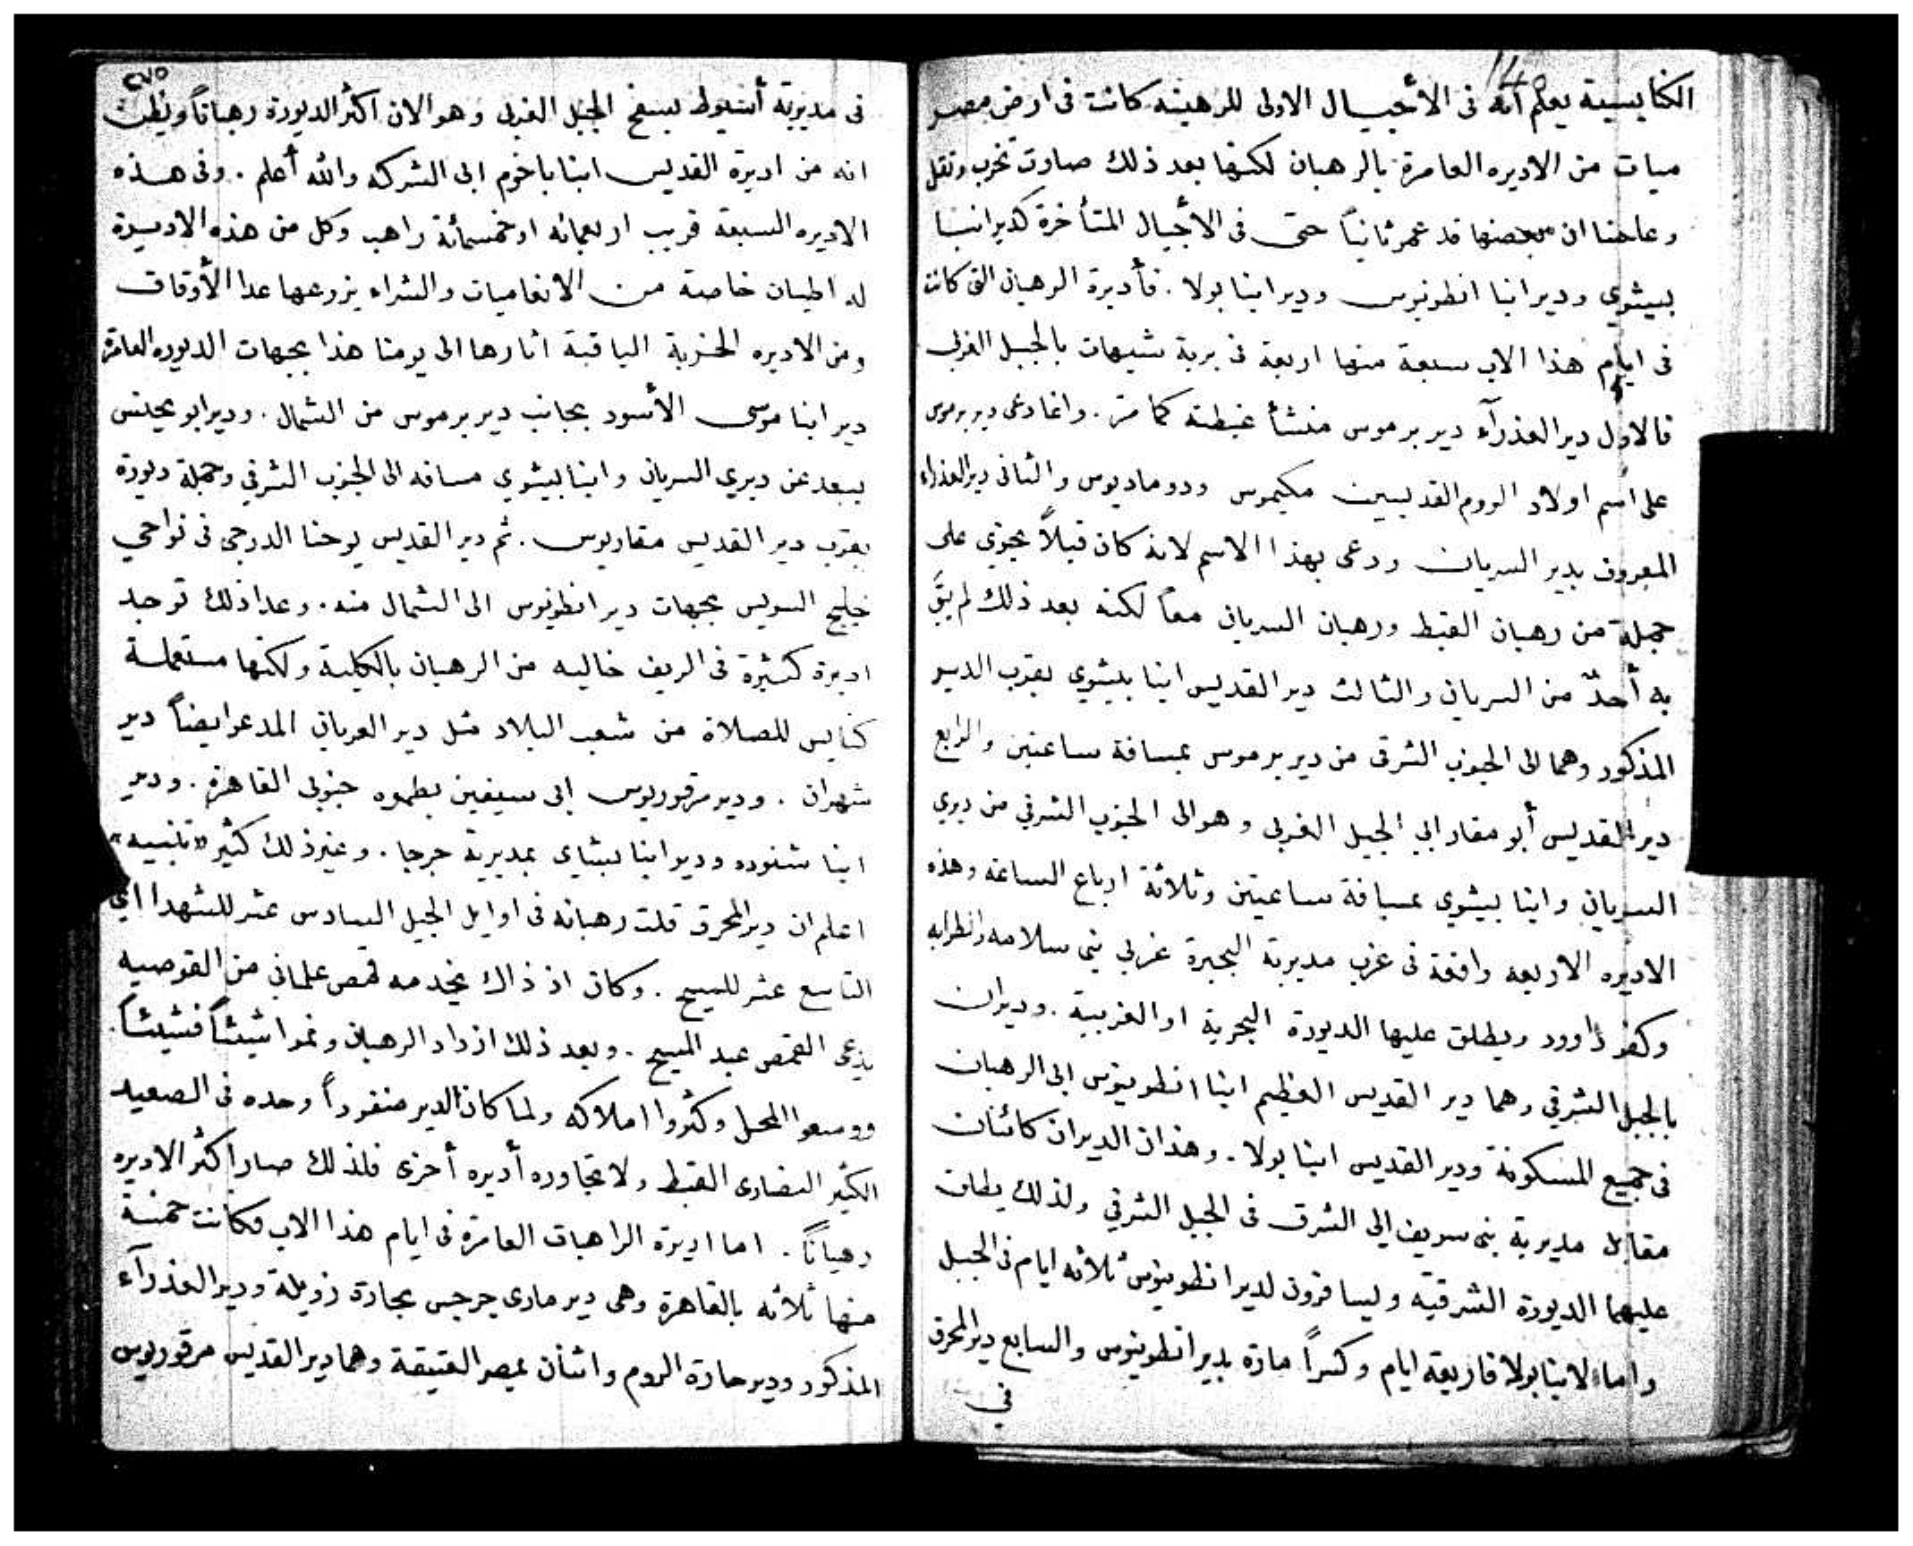 الكنايسية يعلم انه فى الأجيال الاولى للرهبنه كانت فى ارض مصر
ميات من الاديره العامرة بالرهبان لكنها بعد ذلك صارت تخرب وتقل
وعلمنا ان بعضها قد عمر ثانياً حتى فى الأجيال المتأخرة كدير انبا
بيشوي ودير انبا انطونيوس ودير انبا بولا . فأديرة الرهبان التى كانت
فى ايام هذا الاب سبعة منها اربعة فى برية شيهات بالجبل الغربى
فالاول دير العذرآء دير برموس منشأ غبطته كما مر . وانما دعى دير برموس
على اسم اولاد الروم القديسين مكيموس ودوماديوس والثانى دير العذراء
المعروف بدير السريان ودعى بهذا الاسم لانه كان قبلاً يحتوي على
جملة من رهبان القبط ورهبان السريان معاً لكنه بعد ذلك لم يبقَ
به أحدٌ من السريان والثالث دير القديس انبا بيشوي بقرب الدير
المذكور وهما الى الجنوب الشرقى من دير برموس بمسافة ساعتين والرابع
دير القديس أبو مقار ابى الجبل الغربى وهو الى الجنوب الشرقي من ديري
السريان وانبا بيشوي بمسافة ساعتين وثلاثة ارباع الساعه وهذه
الاديره الاربعه واقعة فى غرب مديرية البحيرة غربي بنى سلامه والطرانه
وكفر داوود ويطلق عليها الديورة البحرية او الغربية . وديران
بالجبل الشرقي وهما دير القديس العظيم انبا انطونيوس ابى الرهبان
فى جميع المسكونة ودير القديس انبا بولا . وهذان الديران كائنان
مقابل مديرية بنى سويف الى الشرق فى الجبل الشرقي ولذلك يطلق
عليهما الديورة الشرقية ويسافرون لدير انطونيوس ثلاثه ايام فى الجبل
واما لانبا بولا فاربعه ايام وكسراً مارة بدير انطونيوس والسابع دير المحرق
في
٢٧٥
فى مديرية أسيوط بسفح الجبل الغربى وهو الان اكثر الديورة رهباناً ويظن
انه من اديرة القديس انبا باخوم ابى الشركه والله أعلم . وفى هذه
الاديره السبعة قريب اربعمائه او خمسمائة راهب وكل من هذه الاديرة
له اطيان خاصة من الانعاميات والشراء يزرعها عدا الأوقاف
ومن الاديره الخربة الباقية اثارها الى يومنا هذا بجهات الديوره العامرة
دير انبا موسى الأسود بجانب دير برموس من الشمال . ودير ابو يحنس
يبعد عن ديري السريان وانبا بيشوي مسافه الى الجنوب الشرقي وجملة ديورة
بقرب دير القديس مقاريوس . ثم دير القديس يوحنا الدرجى فى نواحي
خليج السويس بجهات دير انطونيوس الى الشمال منه . وعدا ذلك توجد
اديرة كثيرة فى الريف خاليه من الرهبان بالكلية ولكنها مستعملة
كنايس للصلاة من شعب البلاد مثل دير العريان المدعو ايضاً دير
شهران . ودير مرقوريوس ابى سيفين بطموه جنوبى القاهرة . ودير
انبا شنوده ودير انبا بشاي بمديرية جرجا . وغير ذلك كثير «تنبيه»
اعلم ان دير المحرق قلت رهبانه فى اوايل الجيل السادس عشر للشهدا اي
التاسع عشر للمسيح . وكان اذ ذاك يخدمه قمص علمانى من القوصيه
يدعى القمص عبد المسيح . وبعد ذلك ازداد الرهبان ونموا شيئاً فشيئاً .
ووسعوا المحل وكثروا املاكه ولما كان الدير منفرداً وحده فى الصعيد
الكثير النصارى القبط ولا تجاوره أديره أخرى فلذلك صار اكثر الاديره
رهباناً . اما اديرة الراهبات العامرة فى ايام هذا الاب فكانت خمسة
منها ثلاثه بالقاهرة وهى دير مارى جرجس بحارة زويلة ودير العذرآء
المذكور ودير حارة الروم واثنان بمصر العتيقة وهما دير القديس مرقوريوس